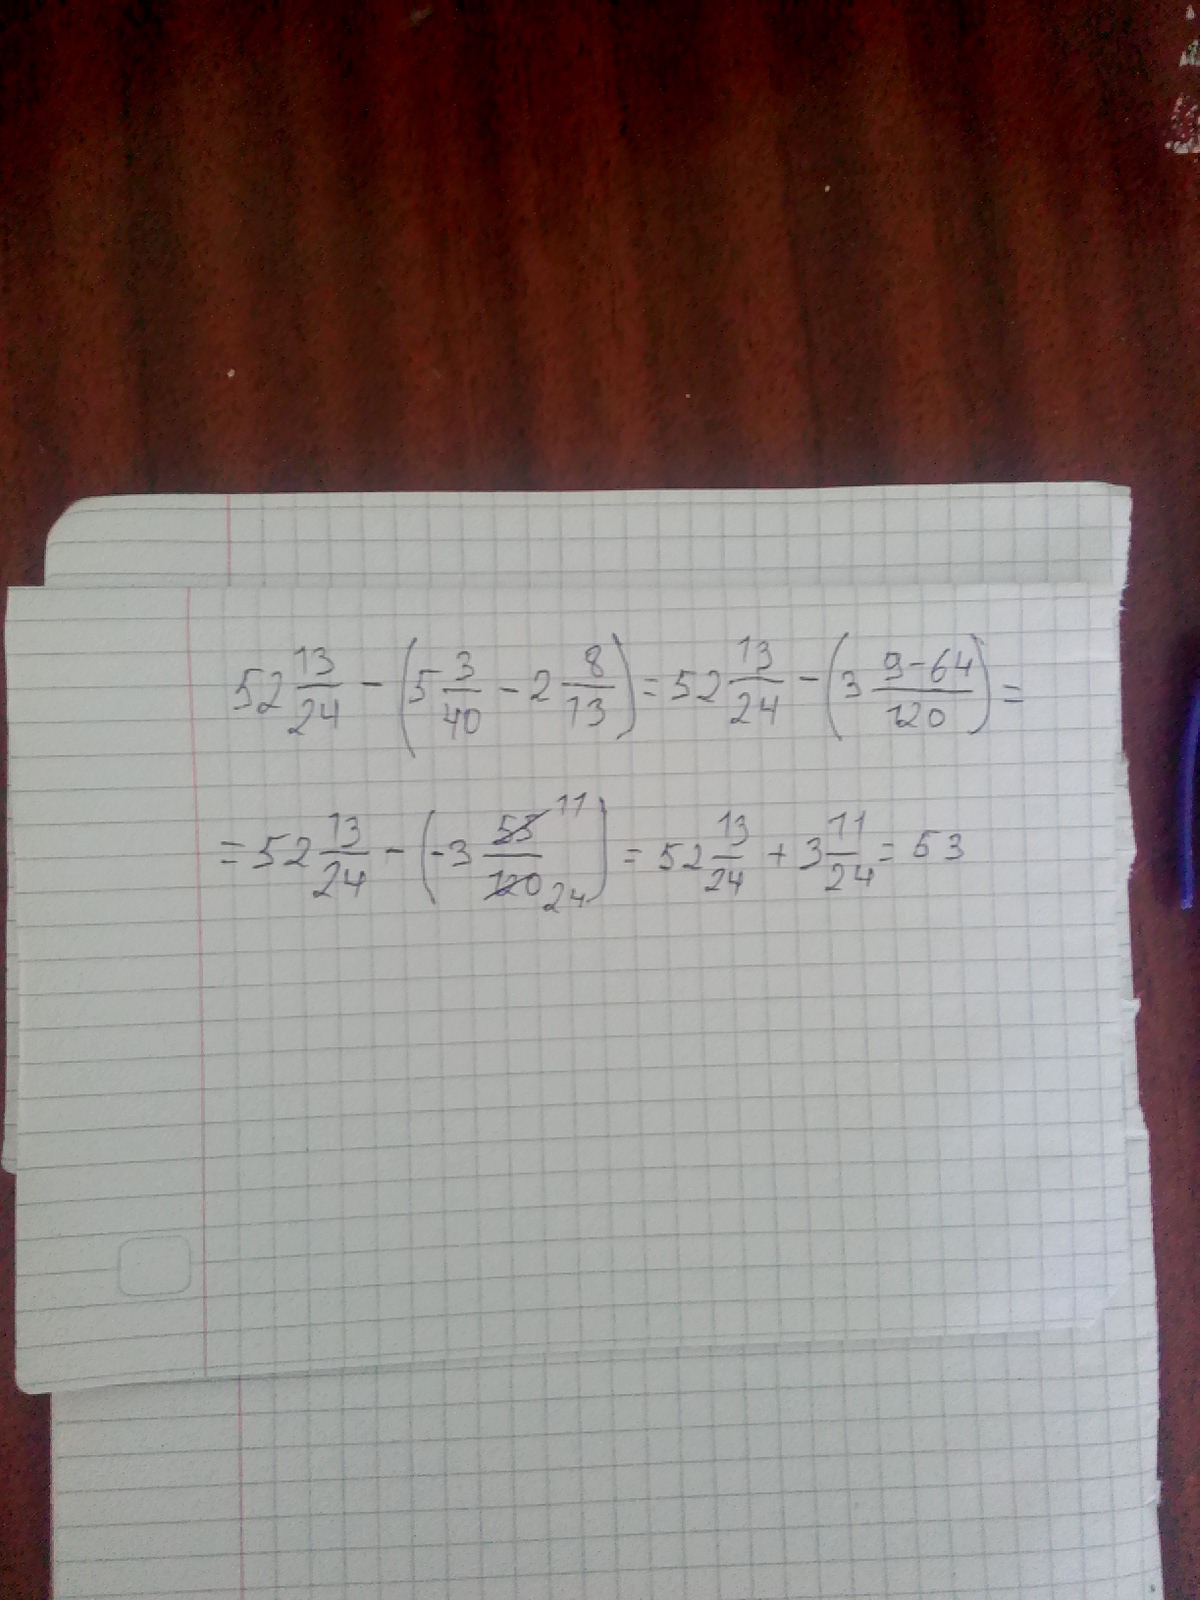 52 13/24 - (5 3/40 - 2 8/13) = 52 13/24 - (3 9-64/120) =
= 52 13/24 - (-3 55/120 11/24) = 52 13/24 + 3 11/24 = 53